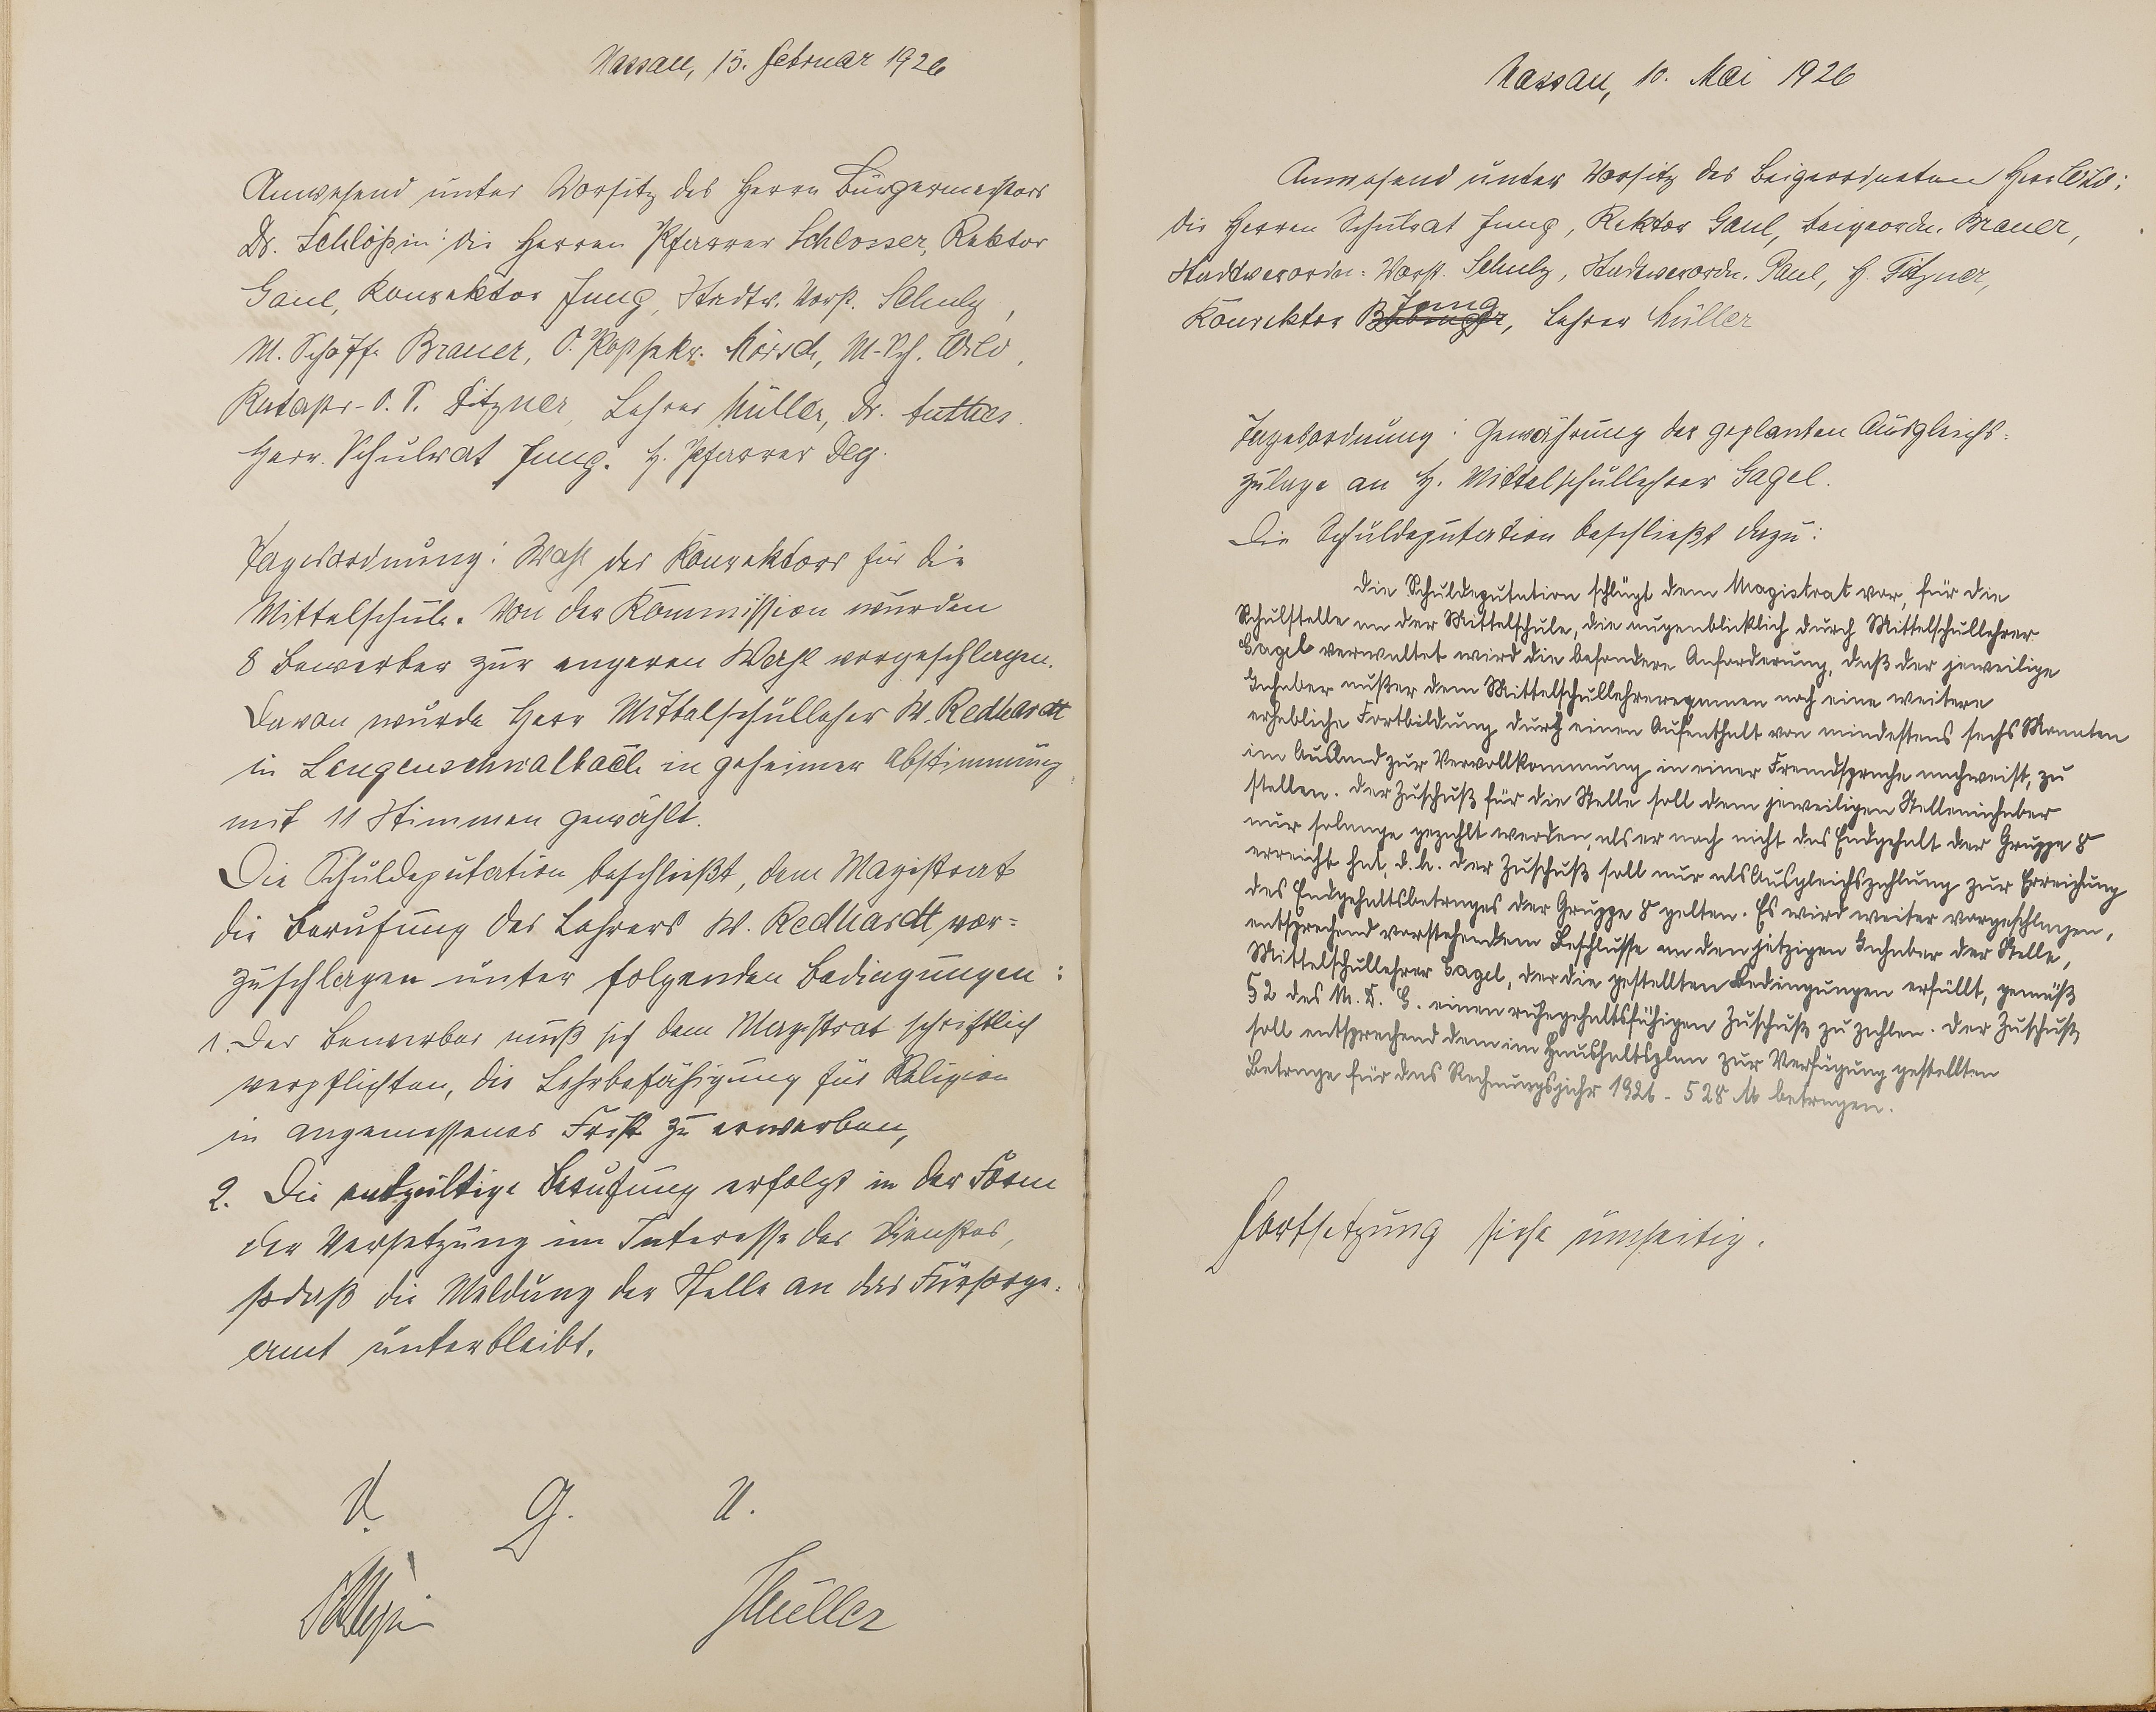 Nassau, 15. Februar 1926
Anwesend unter Vorsitz des Herrn Bürgermeisters
Dr. Schlößin: die Herren Pfarrer Schlosser, Rektor
Gaul, Konrektor Jung, Stadtv. Vorst. Schulz,
M. Schöff. Brauer, O. Postsekr. Mörsch, M-Sch. Wild,
Kataster-O. S. Fitzner, Lehrer Müller, Dr.
Herr Schulrat Jung. H. Pfarrer Deg.
Tagesordnung: Wahl des Konrektors für die
Mittelschule. Von der Kommission wurden
8 Bewerber zur engeren Wahl vorgeschlagen.
Davon wurde Herr Mittelschullehrer W. Redhardt
in Langenschwalbach in geheimer Abstimmung
mit 11 Stimmen gewählt.
Die Schuldeputation beschließt, dem Magistrat
die Berufung des Lehrers W. Redhardt vor-
zuschlagen unter folgenden Bedingungen:
1. Der Bewerber muß sich dem Magistrat schriftlich
verpflichten, die Lehrbefähigung für Religion
in angemessener Frist zu erwerben,
2. Die endgültige Berufung erfolgt in der Form
der Versetzung im Interesse des Dienstes,
sodaß die Meldung der Stelle an das Fürsorge-
amt unterbleibt.
V. G. U.
Müller
Nassau, 10. Mai 1926
Anwesend unter Vorsitz des Beigeordneten Herr Wild:
die Herren Schulrat Jung, Rektor Gaul, Beigeordn. Brauer,
Stadtverordn. Vorst. Schulz, Stadtverordn. Paul, H. Fitzner,
Konrektor Jung, Lehrer Müller
Tagesordnung: Gewährung der geplanten Ausgleichs-
zulage an H. Mittelschullehrer Gagel.
Die Schuldeputation beschließt dazu:
Die Schuldeputation schlägt dem Magistrat vor, für die
Schulstelle an der Mittelschule, die augenblicklich durch Mittelschullehrer
Gagel verwaltet wird die besondere Anforderung, daß der jeweilige
Inhaber außer dem Mittelschullehrerexamen noch eine weitere
erhebliche Fortbildung durch einen Aufenthalt von mindestens sechs Monaten
im Ausland zur Vervollkommnung in einer Fremdsprache nachweist, zu
stellen. Der Zuschuß für die Stelle soll dem jeweiligen Stelleninhaber
nur solange gezahlt werden, als er noch nicht das Endgehalt der Gruppe 8
erreicht hat, d. h. der Zuschuß soll nur als Ausgleichszahlung zur Erreichung
des Endgehaltsbetrages der Gruppe 8 gelten. Es wird weiter vorgeschlagen,
entsprechend vorstehendem Beschlusse an den jetzigen Inhaber der Stelle,
Mittelschullehrer Gagel, der die gestellten Bedingungen erfüllt, gemäß
§ 2 des M. D. G. einen ruhegehaltsfähigen Zuschuß zu zahlen. Der Zuschuß
soll entsprechend dem im Haushaltsplan zur Verfügung gestellten
Betrage für das Rechnungsjahr 1926 - 528 M betragen.
Fortsetzung siehe umseitig.